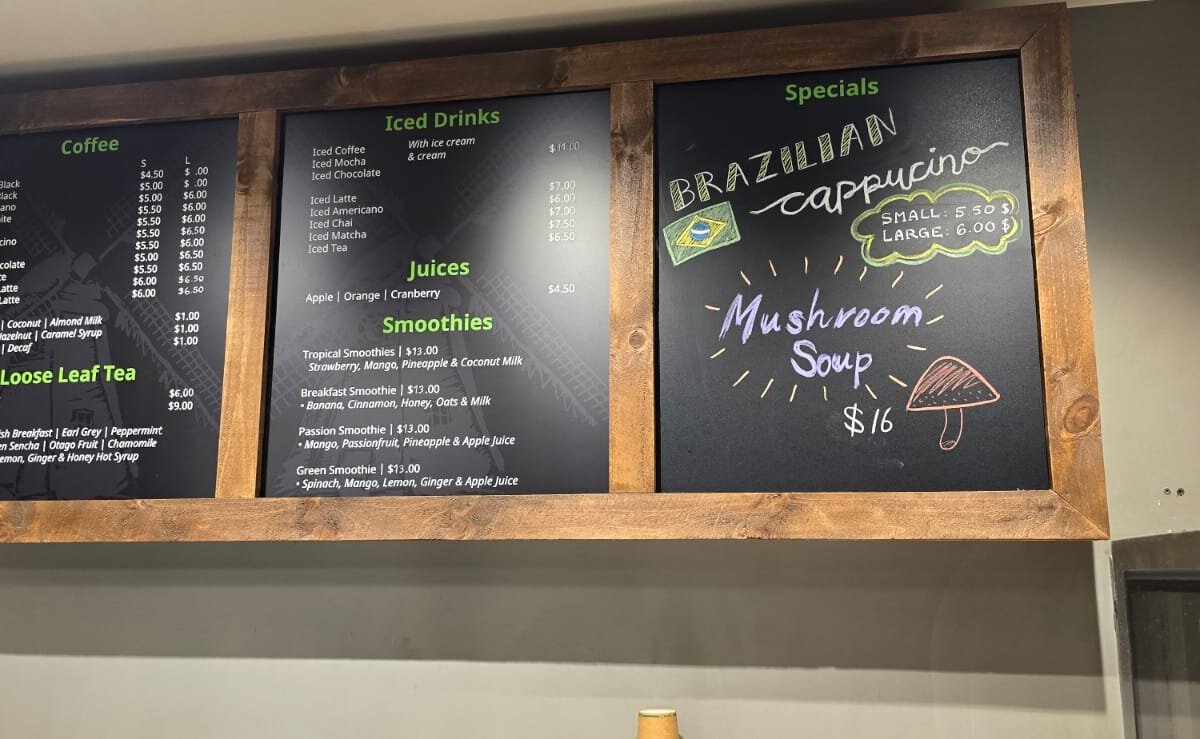 Coffee
S L
Black $4.50 $ .00
Black $5.00 $ .00
$5.00 $6.00
$5.50 $6.00
$5.50 $6.50
cino $5.50 $6.00
$5.50 $6.50
colate $5.00 $6.50
$5.50 $6.50
Latte $6.00 $6.50
Latte $6.00 $6.50
| Coconut | Almond Milk $1.00
| Caramel Syrup $1.00
| Decaf $1.00
Loose Leaf Tea
$6.00
$9.00
Breakfast | Earl Grey | Peppermint
Sencha | Otago Fruit | Chamomile
Ginger & Honey Hot Syrup
Iced Drinks
Iced Coffee With ice cream $11.00
Iced Mocha & cream
Iced Chocolate
Iced Latte $7.00
Iced Americano $6.00
Iced Chai $7.00
Iced Matcha $7.50
Iced Tea $6.50
Juices
Apple | Orange | Cranberry $4.50
Smoothies
Tropical Smoothies | $13.00
Strawberry, Mango, Pineapple & Coconut Milk
Breakfast Smoothie | $13.00
• Banana, Cinnamon, Honey, Oats & Milk
Passion Smoothie | $13.00
• Mango, Passionfruit, Pineapple & Apple Juice
Green Smoothie | $13.00
• Spinach, Mango, Lemon, Ginger & Apple Juice
Specials
BRAZILIAN
cappucino
SMALL: 5.50 $
LARGE: 6.00 $
Mushroom
Soup
$16